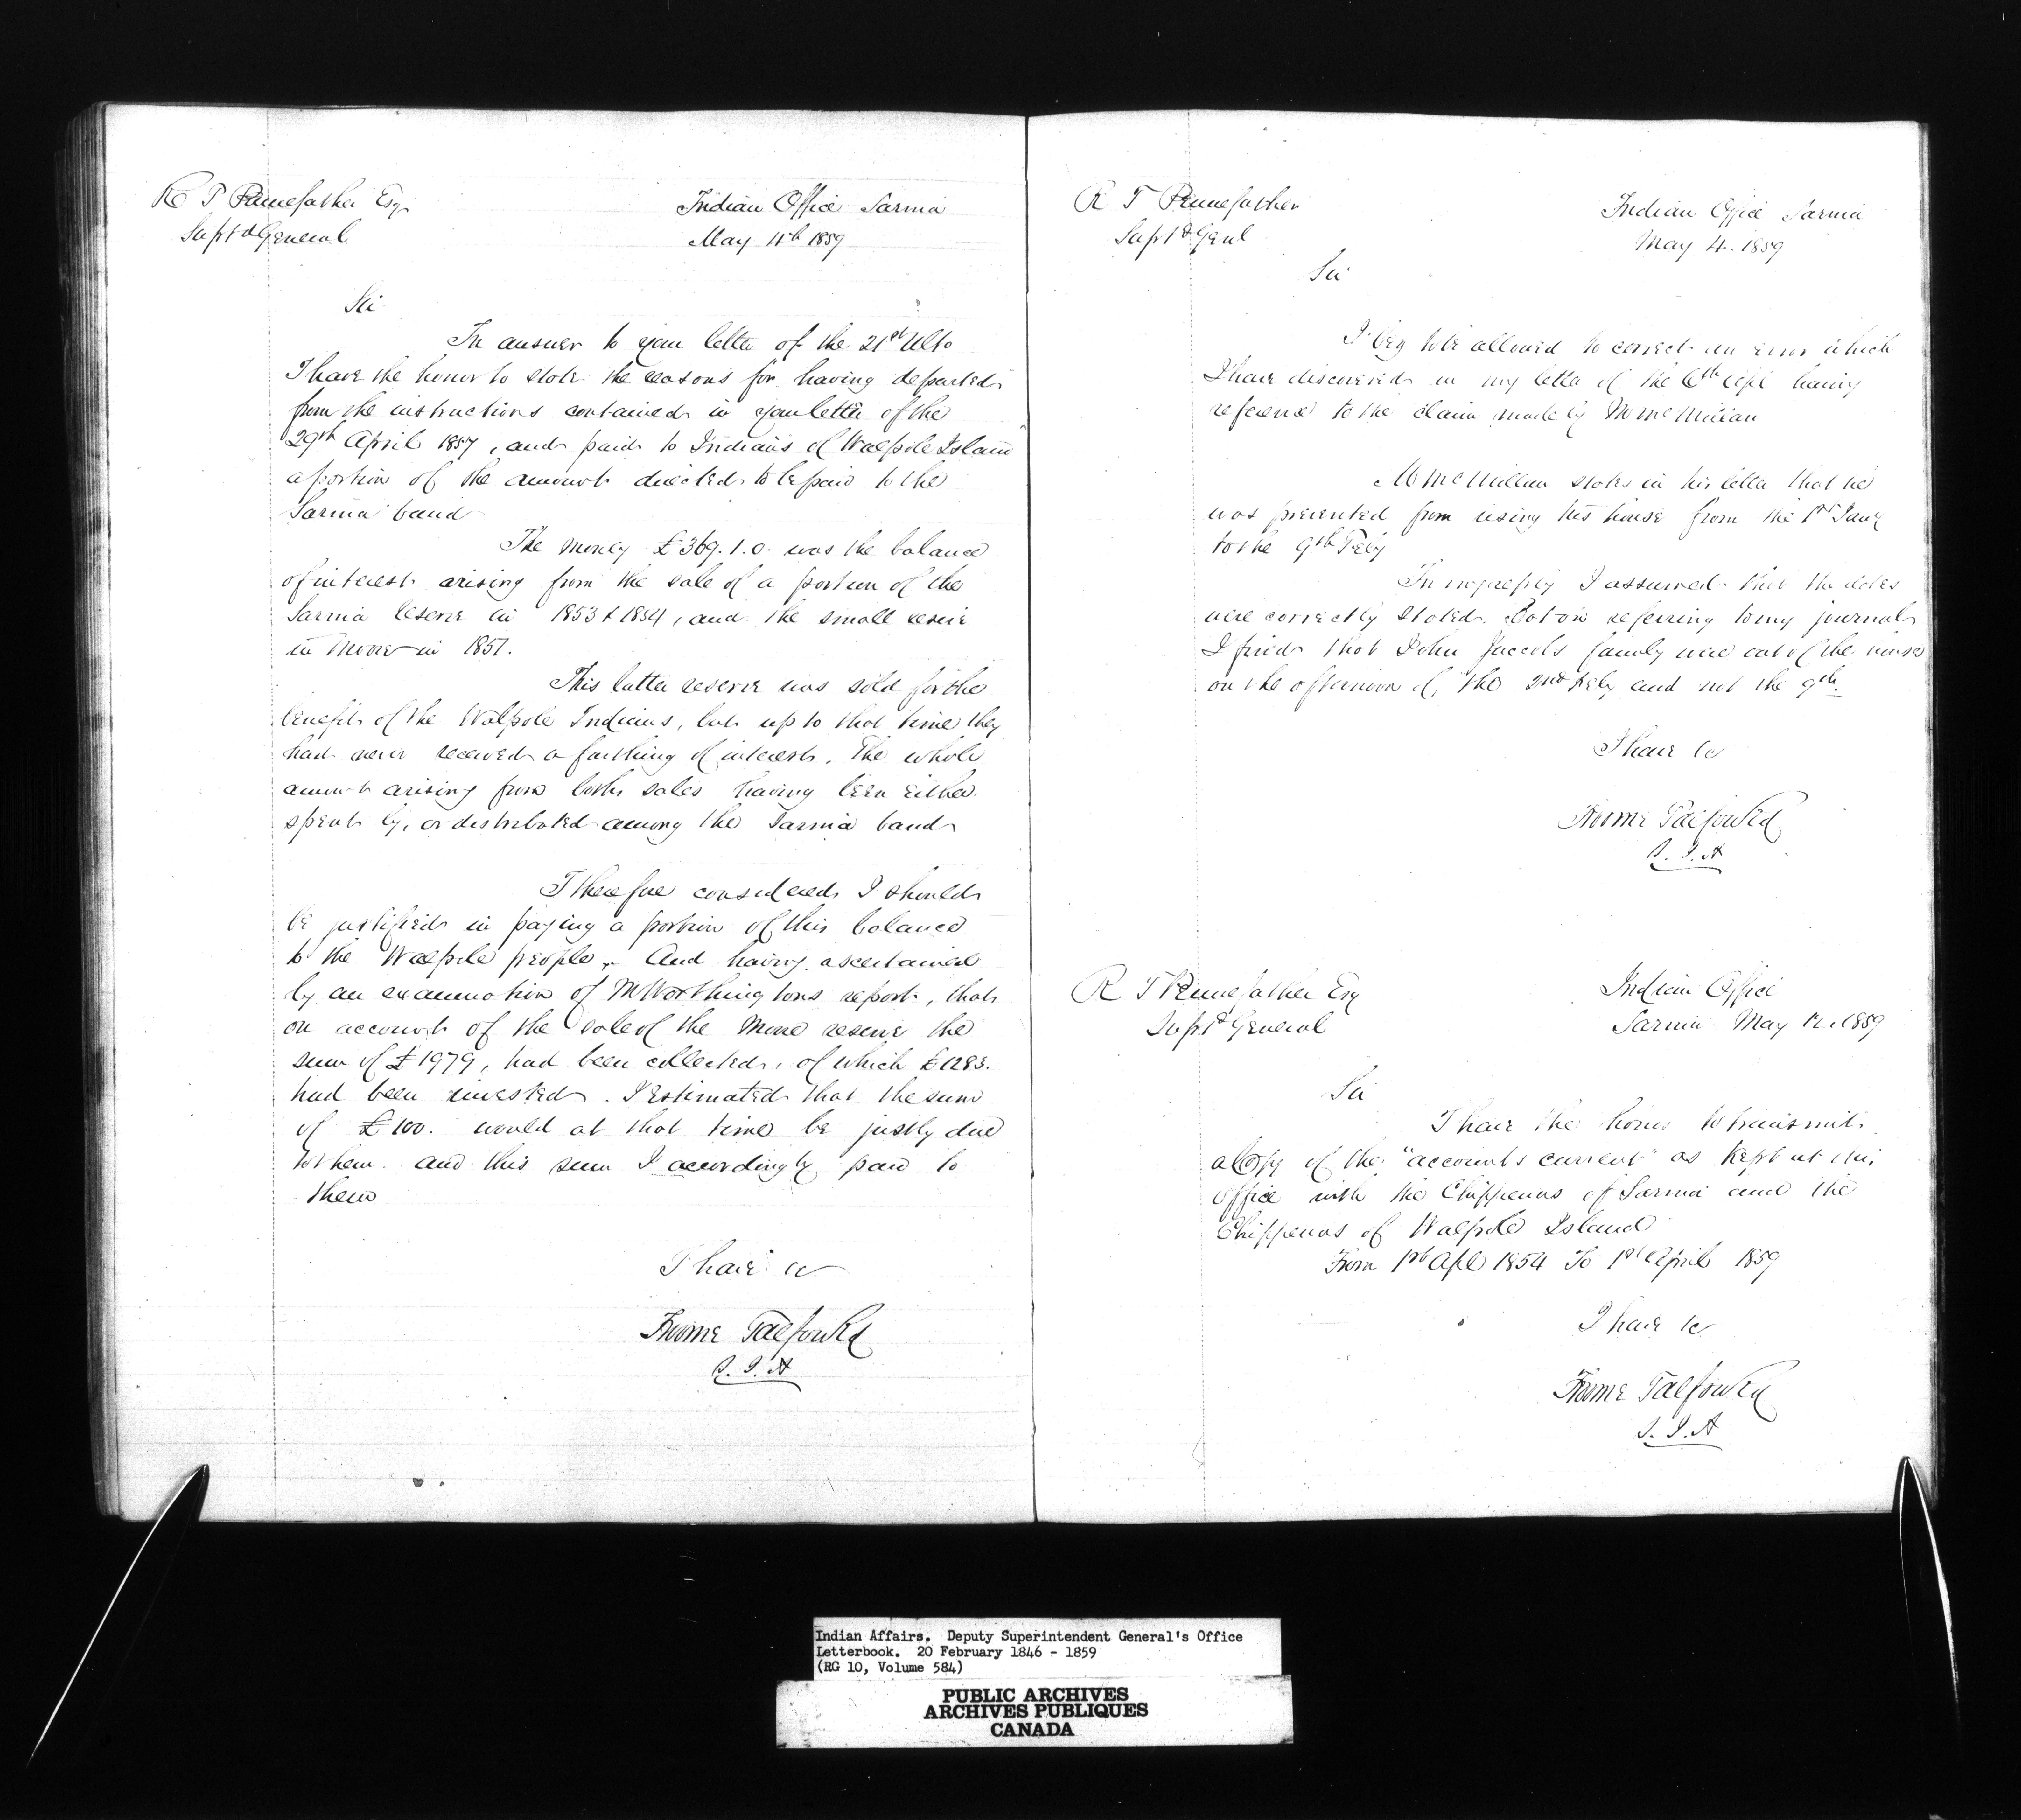 R T Pennefather Esq
Supt d General
Indian Office Sarnia
May 4th 1859
Sir
In answer to your letter of the 21st Ulto
I have the honor to state the reasons for having departed
from the instructions contained in your letter of the
29th April 1857, and paid to Indians of Walpole Island
a portion of the amount directed to be paid to the
Sarnia band
The money £369.1.0 was the balance
of interest arising from the sale of a portion of the
Sarnia reserve in 1853 & 1854, and the small reserve
in Moore in 1857.
This latter reserve was sold for the
benefit of the Walpole Indians, but up to that time they
had never received a farthing of interest. The whole
amount arising from both sales having been either
spent by, or distributed among the Sarnia band
I therefore considered I should
be justified in paying a portion of this balance
to the Walpole people. And having ascertained
by an examination of Mr Worthingtons report, that
on account of the sale of the Moore reserve the
sum of £1979, had been collected, of which £1283.
had been invested. I estimated that the sum
of £100. would at that time be justly due
to them. and this sum I accordingly paid to
them
I have &c
Froome Talfourd
S. I. A
R T Pennefather
Supt d Genl
Indian Office Sarnia
May 4. 1859
Sir
I beg to be allowed to correct an error which
I have discovered in my letter of the 6th Apl having
reference to the claim made by Mr McMillan
Mr McMillan states in his letter that he
was prevented from using his house from the 1st Jany
to the 9th Feby
In my reply I assumed that the dates
were correctly stated. But on referring to my journal
I find that John Jacobs family were out of the house
on the afternoon of the 2nd Feby and not the 9th.
I have &c
Froome Talfourd
S. I. A
R T Pennefather Esq
Supt d General
Indian Office
Sarnia May 12. 1859
Sir
I have the honor to transmit
a Copy of the "accounts current" as kept at this
office with the Chippewas of Sarnia and the
Chippewas of Walpole Island
From 1st Apl 1854 To 1st April 1859
I have &c
Froome Talfourd
S. I. A
Indian Affairs. Deputy Superintendent General's Office
Letterbook. 20 February 1846 - 1859
(RG 10, Volume 584)
PUBLIC ARCHIVES
ARCHIVES PUBLIQUES
CANADA